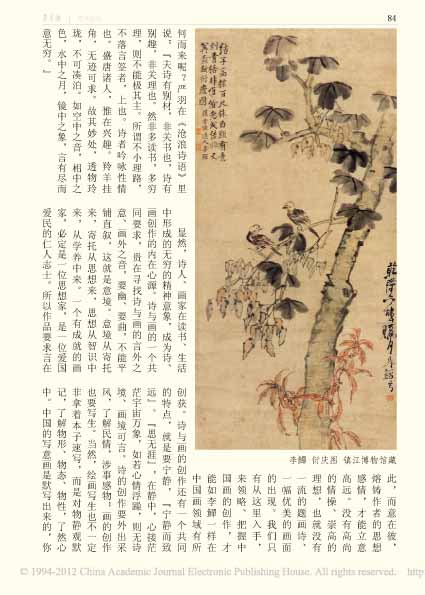 84
何而来呢？严羽在《沧浪诗语》里
说：“夫诗有别材，非关书也，诗有
别趣，非关理也。然非多读书，多穷
理，则不能极其主。所谓不小理路，
不落言筌者，上也。诗者吟咏性情
也。盛唐诸人，惟在兴趣。羚羊挂
角，无迹可求。故其妙处，透物玲
珑，不可凑泊。如空中之音，相中之
色，水中之月，镜中之象，言有尽而
意无穷。”
显然，诗人、画家在读书、生活
中形成的无穷的精神意象，成为诗、
画创作的内在心源。诗与画的一个共
同要求，贵在寻找诗与画的言外之
意、画外之音，要幽，要曲，不能平
铺直叙，这就是意境。意境从寄托
来，寄托从思想来，思想从智识中
来，从学养中来。一个有成就的画
家，必定是一位思想家，是一位爱国
爱民的仁人志士。所以作品要求言在
李鱓 衍庆图 镇江博物馆藏
此，而意在彼，
熔铸作者的思想
感情，才能立意
高远。没有高尚
的情操、崇高的
理想，也就没有
一流的题画诗、
一幅优美的画面
的出现。我们只
有从这里入手，
来领略、把握中
国画的创作，才
能如李鱓一样在
中国画领域有所
创获。诗与画的创作还有一个共同
的特点，就是要宁静，“宁静而致
远”。“思无涯”，在静中，心接茫
茫宇宙万象，如若心情浮躁，则无诗
境、画境可言。诗的创作要外出采
风，了解民情，涉事感物；画的创作
也要写生。当然，绘画写生也不一定
非拿着本子速写，而是对物静观默
记，了解物形、物态、物性，了然心
中。中国的写意画是默写出来的，你
© 1994-2012 China Academic Journal Electronic Publishing House. All rights reserved. http